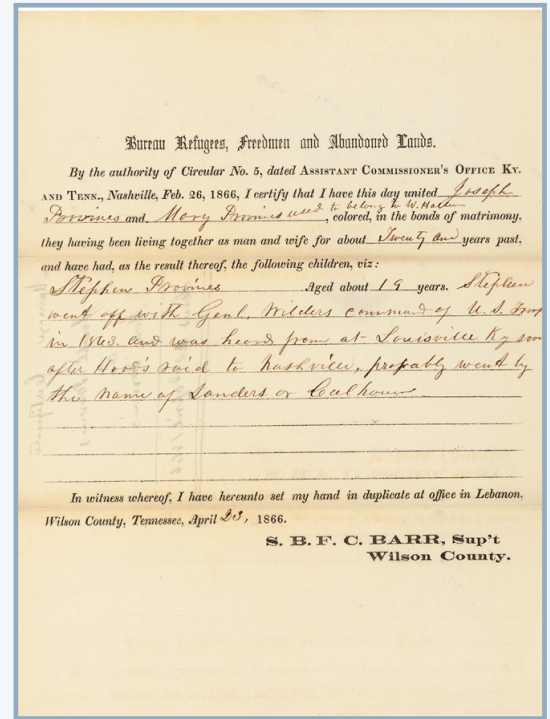 Bureau Refugees, Freedmen and Abandoned Lands.
By the authority of Circular No. 5, dated ASSISTANT COMMISSIONER'S OFFICE KY.
AND TENN., Nashville, Feb. 26, 1866, I certify that I have this day united Joseph
Provines and Mary Provines used to belong to W. , colored, in the bonds of matrimony,
they having been living together as man and wife for about Twenty One years past,
and have had, as the result thereof, the following children, viz:
Stephen Provines Aged about 19 years. Stephen
went off with Genl. Wilders command of U.S. Troop
in 1863. and was heard from at Louisville Ky soon
after Hood's raid to Nashville, probably went by
the name of Sanders or Calhoun.
In witness whereof, I have hereunto set my hand in duplicate at office in Lebanon,
Wilson County, Tennessee, April 23, 1866.
S. B. F. C. BARR, Sup't
Wilson County.